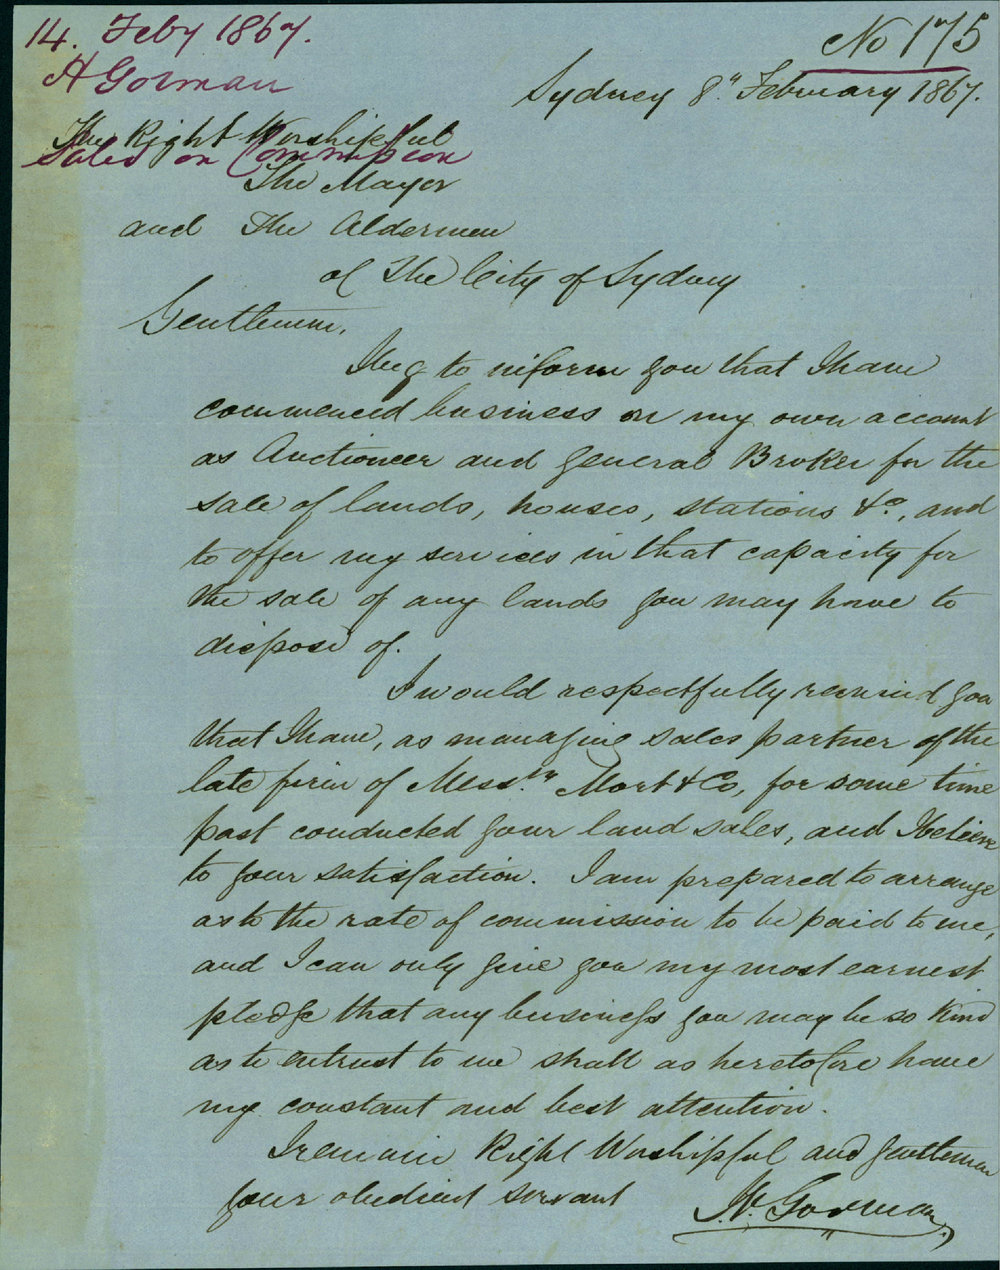 14. Feby 1867.
A Gorman
Sales on Commission
No 175
Sydney 8" February 1867.
The Right Worshipful
The Mayor
and The Aldermen
of The City of Sydney
Gentlemen,
I beg to inform you that I have
commenced business on my own account
as Auctioneer and general Broker for the
sale of lands, houses, stations &c., and
to offer my services in that capacity for
the sale of any lands you may have to
dispose of.
I would respectfully remind you
that I have, as managing sales partner of the
late firm of Messrs. Mort & Co, for some time
past conducted your land sales, and I believe
to your satisfaction. I am prepared to arrange
as to the rate of commission to be paid to me,
and I can only give you my most earnest
pledge that any business you may be so kind
as to entrust to me shall as heretofore have
my constant and best attention.
I remain Right Worshipful and gentlemen
your obedient servant
Gorman